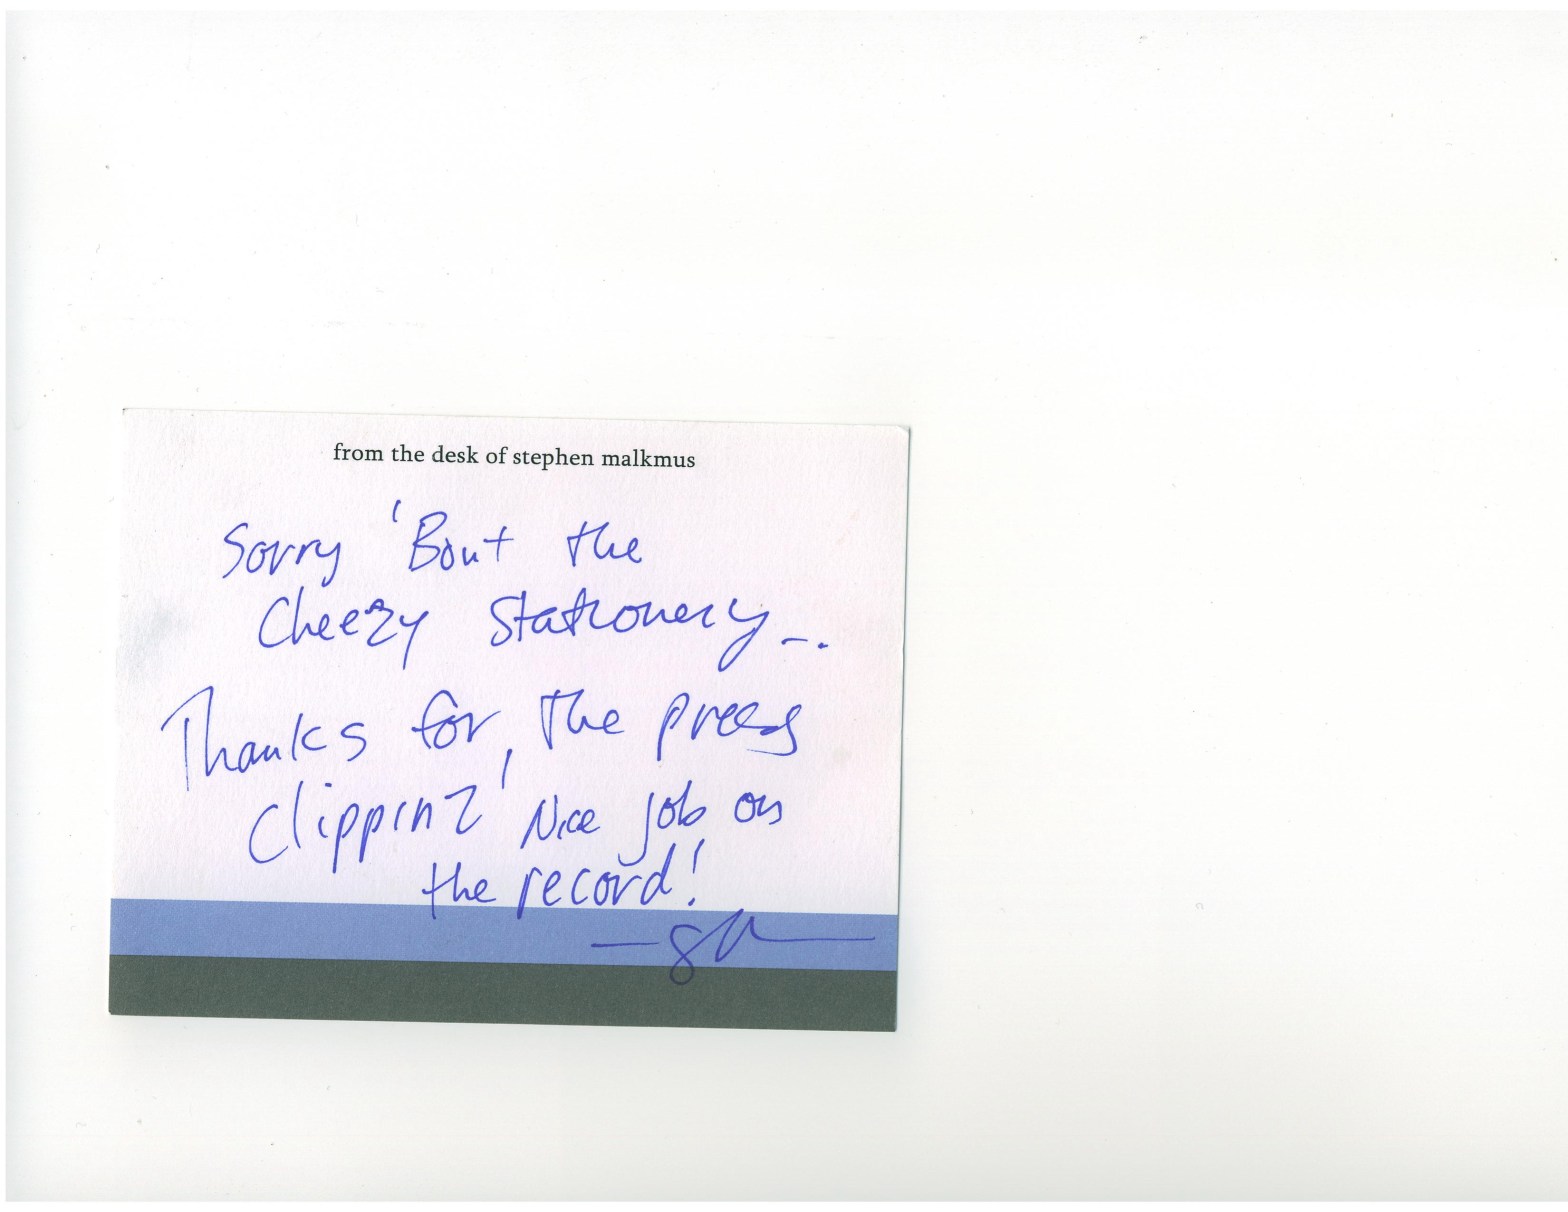 from the desk of stephen malkmus
Sorry 'Bout the
Cheezy Stationery_.
Thanks for, the press
clippinz' Nice job on
the record!
— SM